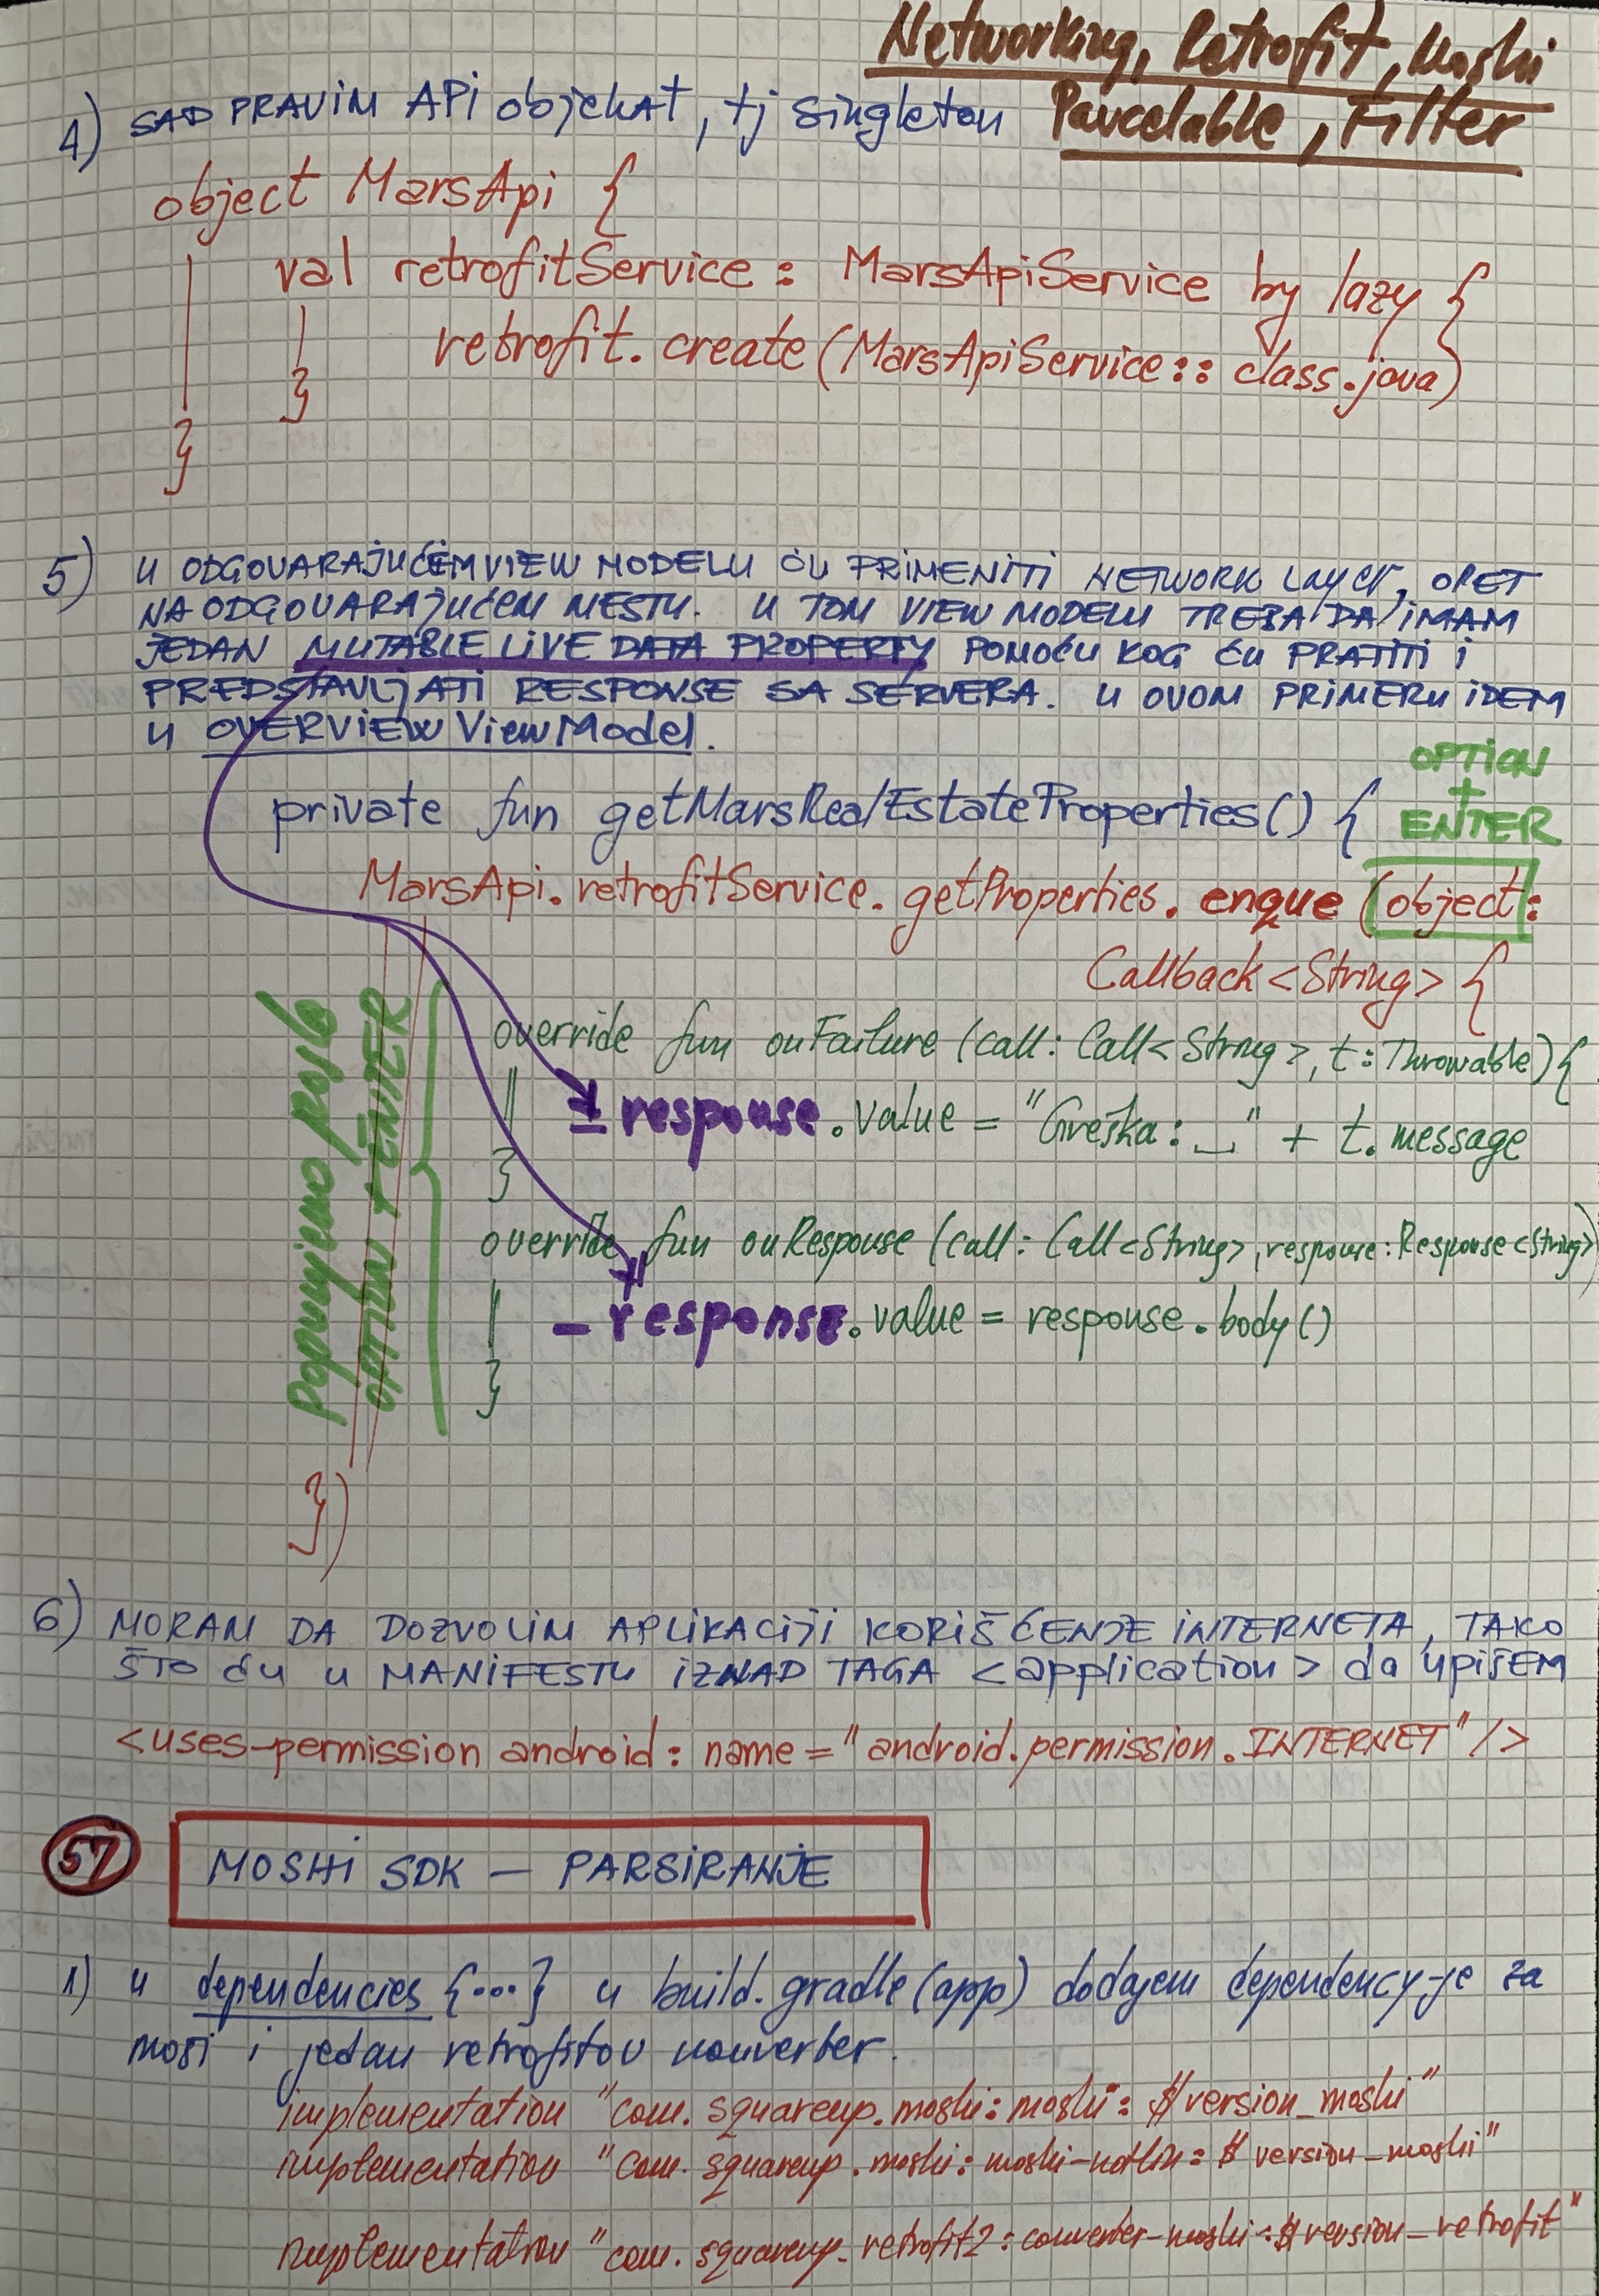 Networking, Retrofit, Moshi
Parcelable, Filter
4) SAD PRAVIM API objekat, tj singleton
object MarsApi {
val retrofitService : MarsApiService by lazy {
retrofit.create(MarsApiService::class.java)
}
}
5) U ODGOVARAJUĆEM VIEW MODELU ĆU PRIMENITI NETWORK LAYER, OPET
NA ODGOVARAJUĆEM MESTU. U TOM VIEW MODELU TREBA DA IMAM
JEDAN MUTABLE LIVE DATA PROPERTY POMOĆU KOG ĆU PRATITI I
PREDSTAVLJATI RESPONSE SA SERVERA. U OVOM PRIMERU IDEM
U OVERVIEW ViewModel.
OPTION
+
ENTER
private fun getMarsRealEstateProperties() {
MarsApi.retrofitService.getProperties.enque (object :
Callback<String> {
Popunjemo posle
OPTION + ENTER
override fun onFailure (call: Call<String>, t: Throwable) {
_response.value = "Greška: _" + t.message
}
override fun onResponse (call: Call<String>, response: Response<String>)
_response.value = response.body()
}
})
6) MORAM DA DOZVOLIM APLIKACIJI KORIŠĆENJE INTERNETA, TAKO
ŠTO ĆU U MANIFESTU IZNAD TAGA <application> da UPIŠEM
<uses-permission android:name="android.permission.INTERNET" />
57 MOSHI SDK – PARSIRANJE
1) u dependencies {...} u build.gradle (app) dodajem dependency-je za
moši i jedan retrofitov konverter.
implementation "com.squareup.moshi:moshi:$version_moshi"
implementation "com.squareup.moshi:moshi-kotlin:$version_moshi"
implementation "com.squareup.retrofit2:converter-moshi:$version_retrofit"